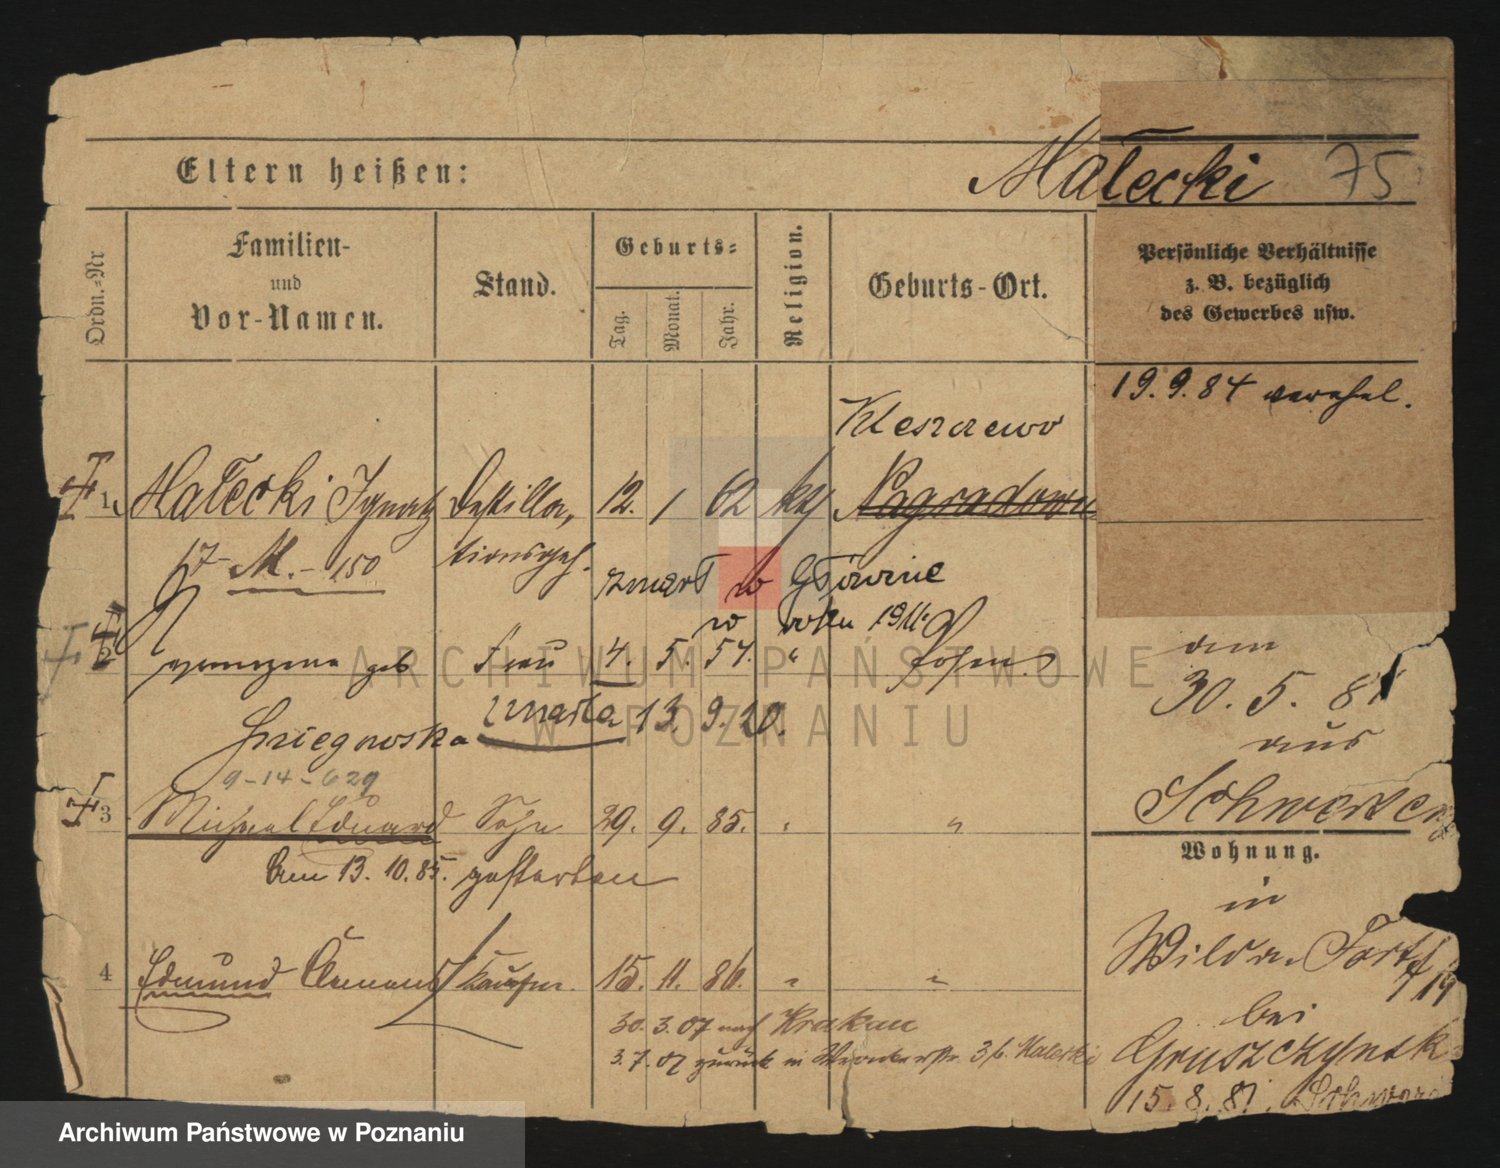 Eltern heißen:
Małecki 75
Ordn.=Nr
Familien-
und
Vor-Namen.
Stand.
Geburts=
Tag.
Monat.
Jahr.
Religion.
Geburts-Ort.
Persönliche Verhältnisse
z. B. bezüglich
des Gewerbes usw.
19. 9. 84 verehel.
1 Małecki Ignatz Destilla, 12. 1 62 kth
Kleszczewo
Nagradowic
17- M. - 150 tionsgeh.
zmarł w Głównie
w roku 1911.
2 geb Frau 4. 5. 54. " Posen
zmarła 13. 9. 20.
9-14-629
3 Michael Eduard Sohn 29. 9. 85. " "
Am 13. 10. 85. gestorben
4 Edmund Clemens Kaufm. 15. 11. 86. " "
30. 3. 07 nach Krakau
3. 7. 07 zurück in 3 b. Małecki
am
30. 5. 81
aus
Schwersenz
Wohnung.
in
Wilda
bei
Gruszczynsk
15. 8. 81.
ARCHIWUM PAŃSTWOWE
W POZNANIU
Archiwum Państwowe w Poznaniu